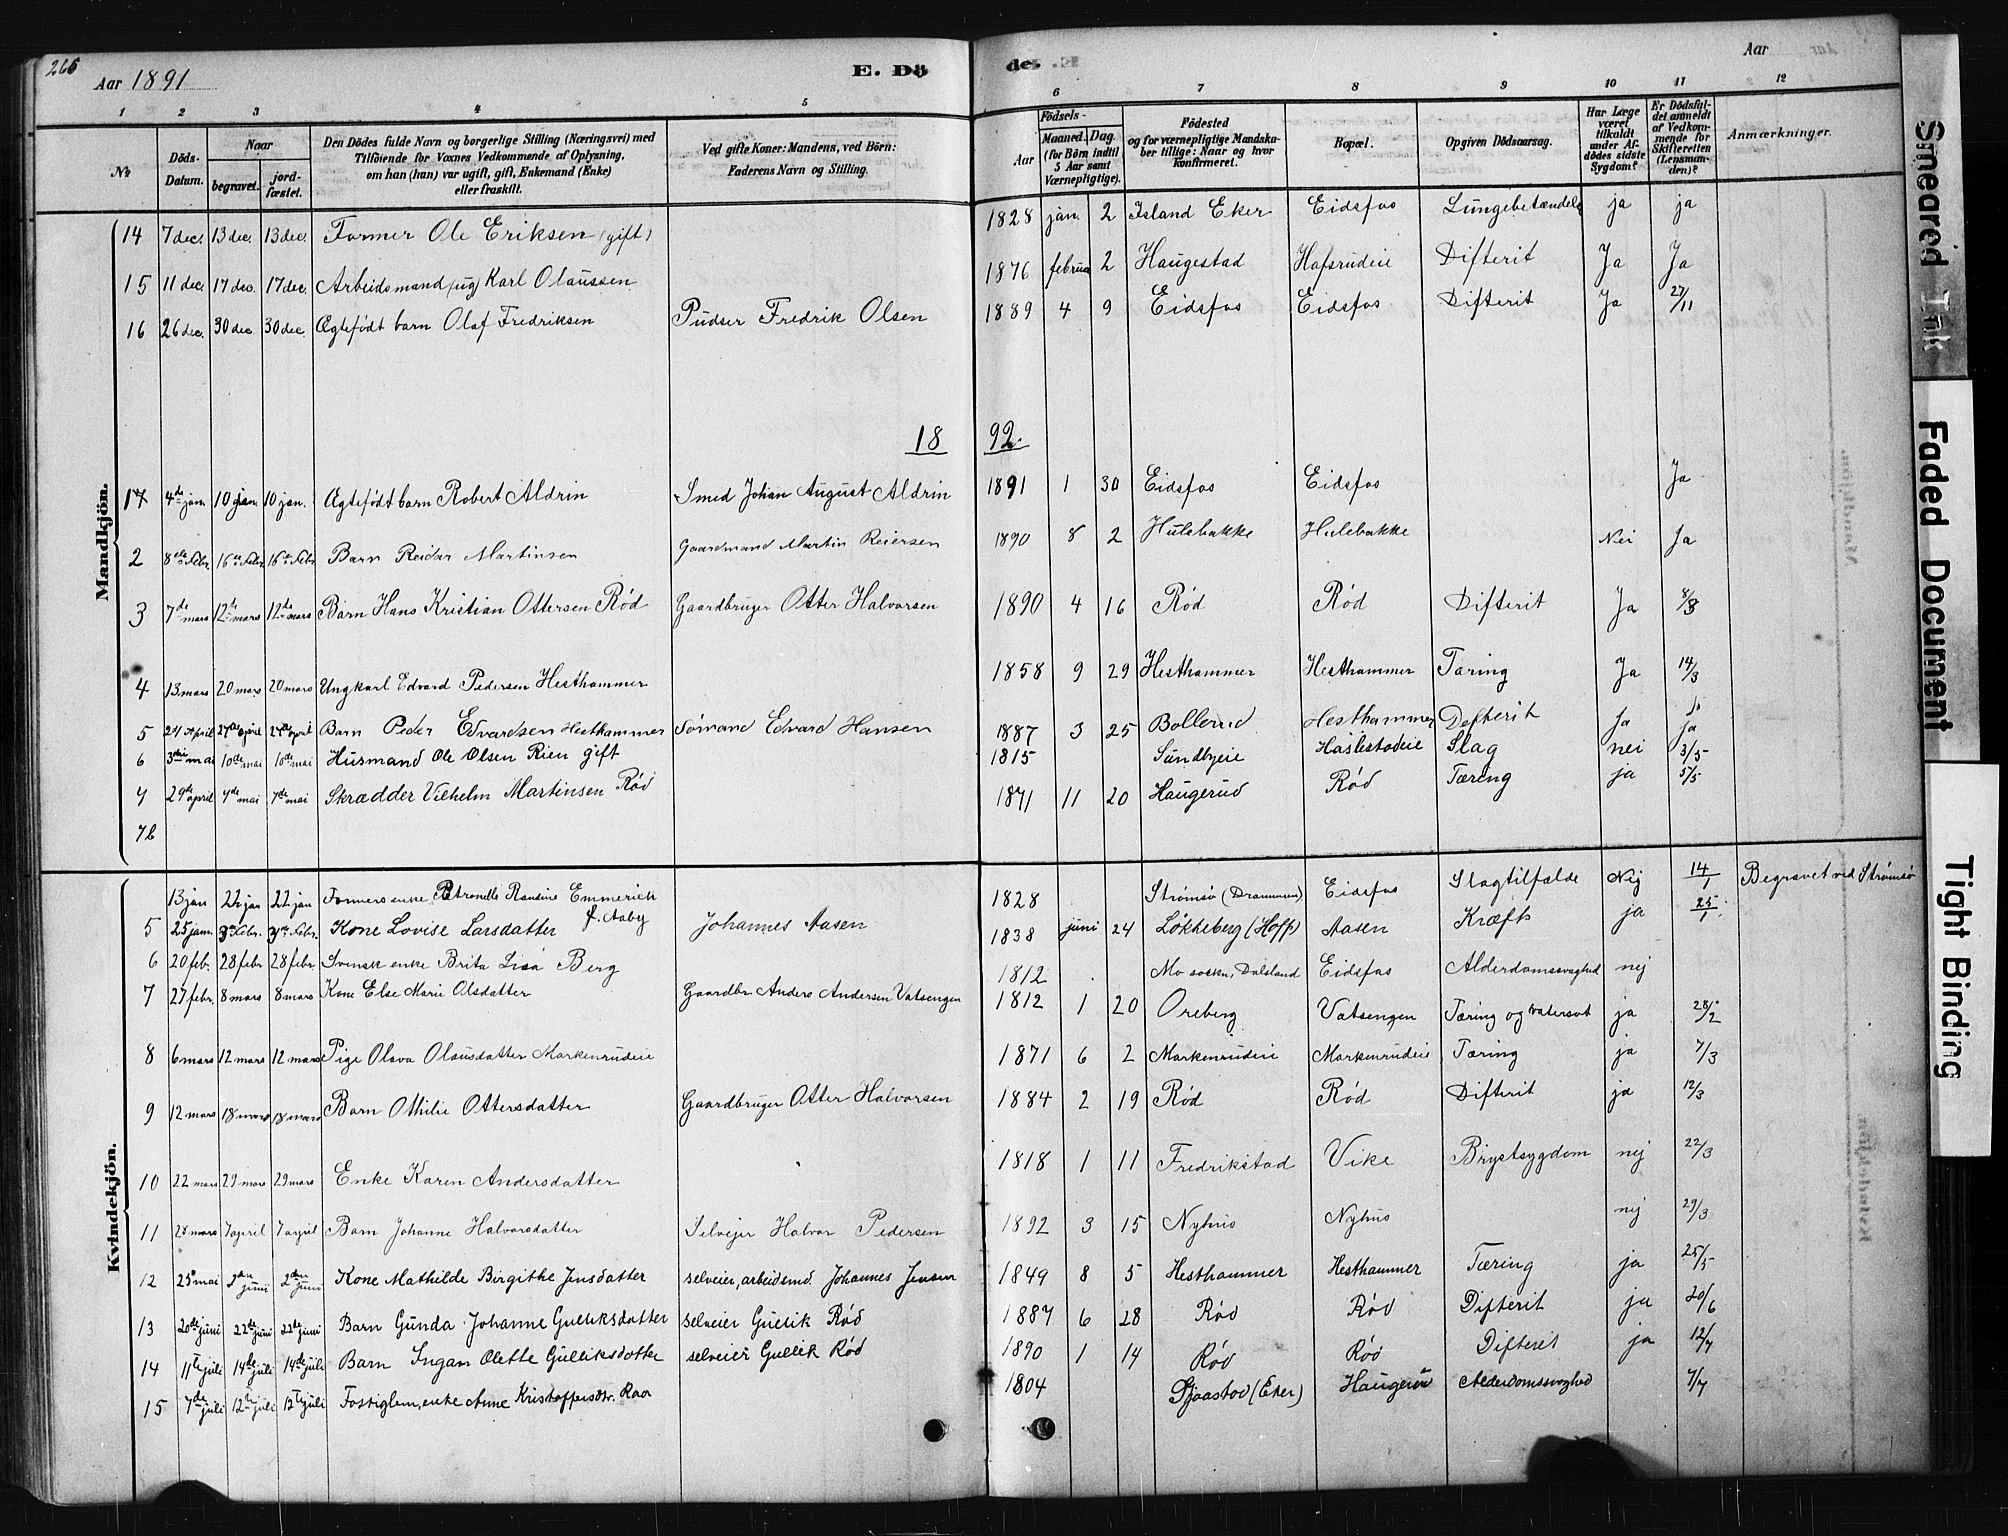 266
Aar 1891
E. Dö
de.
Aar
1 2 3 4 5 6 7 8 9 10 11 12
No
Döds-Datum.
Naar
begravet.
jord-fæstet.
Den Dödes fulde Navn og borgerlige Stilling (Næringsvei) med
Tilföiende for Voxnes Vedkommende af Oplysning,
om han (hun) var ugift, gift, Enkemand (Enke)
eller fraskilt.
Ved gifte Koner: Mandens, ved Börn:
Faderens Navn og Stilling.
Födsels-
Aar
Maaned. Dag.
(for Börn indtil
5 Aar samt
Værnepligtige).
Födested
og for værnepligtige Mandska-
ber tillige: Naar og hvor
konfirmeret.
Bopæl.
Opgiven Dödsaarsag.
Har Læge
været
tilkaldt
under Af-
dödes sidste
Sygdom?
Er Dödsfal-
det anmeldt
af Vedkom-
mende for
Skifteretten
(Lensman-
den)?
Anmærkninger.
Mandkjön.
14 7 dec. 13 dec. 13 dec. Former Ole Eriksen (gift) 1828 jan. 2 Island Eker Eidsfos Lungebetændelse ja ja
15 11 dec. 17 dec. 17 dec. Arbeidsmand (ug) Karl Olaussen 1876 februa 2 Haugestad Hafsrudeie Difterit Ja Ja
16 26 dec. 30 dec. 30 dec. Ægtefødt barn Olaf Fredriksen Pudser Fredrik Olsen 1889 4 9 Eidsfos Eidsfos Difterit Ja 27/11
18 92.
1 4de jan. 10 jan. 10 jan. Ægtefødt barn Robert Aldrin Smed Johan August Aldrin 1891 1 30 Eidsfos Eidsfos Ja
2 8de Febr. 16de Febr 16de Febr Barn Reidar Martinsen Gaardmand Martin Reiersen 1890 8 2 Hulebakke Hulebakke Nei Ja
3 7de mars 12de mars 12de mars Barn Hans Kristian Ottersen Rød Gaardbruger Otter Halvorsen 1890 4 16 Rød Rød Difterit Ja 8/3
4 13 mars 20 mars 20 mars Ungkarl Edvard Pedersen Hesthammer 1858 9 29 Hesthammer Hesthammer Tæring Ja 14/3
5 21 April 27de April 27de April Barn Peder Edvardsen Hesthammer Sømand Edvard Hansen 1887 3 25 Bollerud Hesthammer Defterit Ja ja
6 3die mai 10de mai 10de mai Husmand Ole Olsen Rien gift 1815 Sundbyeie Haslestadeie Slag nei 3/5
7 29de april 7de mai 7de mai Skrædder Vilhelm Martinsen Rød 1871 11 20 Haugerud Rød Tæring ja 5/5
7b
Kvindekjön.
13 jan 22 jan 22 jan Formers enke Petronelle Randine Emmerich f. Aaby 1828 Strømsø (Drammen) Eidsfos Slagtilfælde Nej 14/1 Begravet ved Strømsø
5 25 jan. 3de Febr. 3de Febr. Kone Lovise Larsdatter Johannes Aasen 1838 juni 24 Løkkeberg (Hoff) Aasen Kræft ja 25/1
6 20 feb. 28 febr 28 febr Svensk enke Brita Lisa Berg 1812 Mo sockn, Dalsland Eidsfos Alderdomssvaghed nej
7 27 febr. 8 mars 8 mars Kone Else Marie Olsdatter Gaardbr Anders Andersen Vatsengen 1812 1 20 Oreberg Vatsengen Tæring og vatersot ja 28/2
8 6 mars 12 mars 12 mars Pige Olava Olausdatter Markenrudeie 1871 6 2 Markenrudeie Markenrudeie Tæring ja 7/3
9 12 mars 18 mars 18 mars Barn Othilie Ottersdatter Gaardbruger Otter Halvorsen 1884 2 19 Rød Rød Difterit ja 12/3
10 22 mars 29 mars 29 mars Enke Karen Andersdatter 1818 1 11 Fredrikstad Vike Brystsygdom nej 22/3
11 28 mars 7 april 7 april Barn Johanne Halvorsdatter Selvejer Halvor Pedersen 1892 3 15 Nyhus Nyhus nej 29/3
12 25 mai 2den juni 2den juni Kone Mathilde Birgithe Jensdatter selveier, arbeidsmd. Johannes Jensen 1849 8 5 Hesthammer Hesthammer Tæring ja 25/5
13 20de juni 22de juni 22de juni Barn Gunda Johanne Gulliksdatter selveier Gullik Rød 1887 6 28 Rød Rød Difterit ja 20/6
14 11te juli 14de juli 14de juli Barn Ingan Olette Gulliksdatter selveier Gullik Rød 1890 1 14 Rød Rød Difterit ja 12/7
15 7de juli 12te juli 12te juli Fostiglem, enke Anne Kristoffersdtr. Raa 1804 Sjaastad (Eker) Haugerud Alderdomssvaghed 7/7
Smeared Ink
Faded Document
Tight Binding